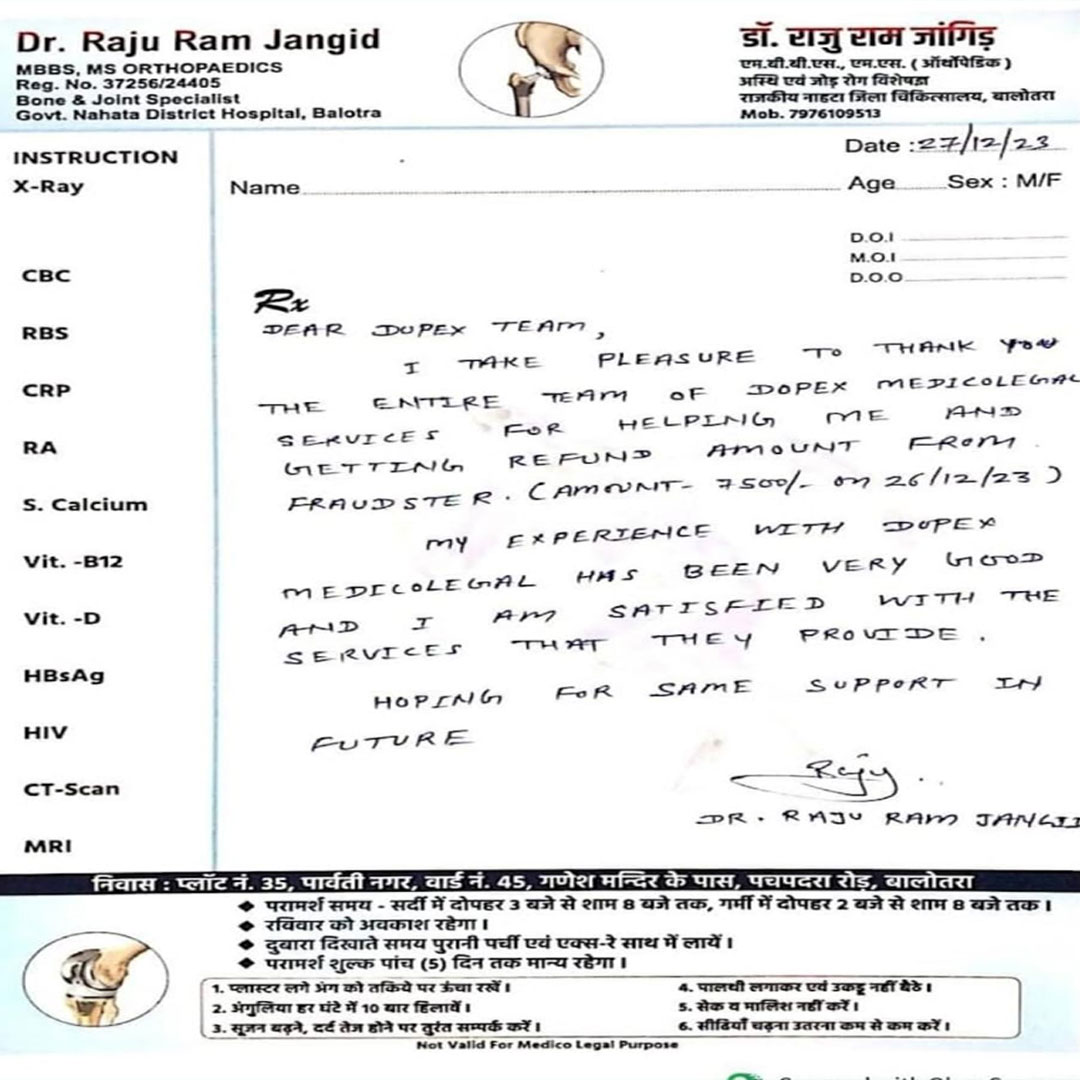 Dr. Raju Ram Jangid
MBBS, MS ORTHOPAEDICS
Reg. No. 37256/24405
Bone & Joint Specialist
Govt. Nahata District Hospital, Balotra
डॉ. राजु राम जांगिड़
एम.बी.बी.एस., एम.एस. ( ऑर्थोपेडिक )
अस्थि एवं जोड़ रोग विशेषज्ञ
राजकीय नाहटा जिला चिकित्सालय, बालोतरा
Mob. 7976109513
Date : 27/12/23
Name Age Sex : M/F
D.O.I
M.O.I
D.O.O
INSTRUCTION
X-Ray
CBC
RBS
CRP
RA
S. Calcium
Vit. -B12
Vit. -D
HBsAg
HIV
CT-Scan
MRI
Rx
DEAR DOPEX TEAM,
I TAKE PLEASURE TO THANK YOU
THE ENTIRE TEAM OF DOPEX MEDICOLEGAL
SERVICES FOR HELPING ME AND
GETTING REFUND AMOUNT FROM
FRAUDSTER. (AMOUNT- 7500/- on 26/12/23)
MY EXPERIENCE WITH DOPEX
MEDICOLEGAL HAS BEEN VERY GOOD
AND I AM SATISFIED WITH THE
SERVICES THAT THEY PROVIDE.
HOPING FOR SAME SUPPORT IN
FUTURE
Raju
DR. RAJU RAM JANGID
निवास : प्लॉट नं. 35, पार्वती नगर, वार्ड नं. 45, गणेश मन्दिर के पास, पचपदरा रोड़, बालोतरा
◆ परामर्श समय - सर्दी में दोपहर 3 बजे से शाम 8 बजे तक, गर्मी में दोपहर 2 बजे से शाम 8 बजे तक।
◆ रविवार को अवकाश रहेगा।
◆ दुबारा दिखाते समय पुरानी पर्ची एवं एक्स-रे साथ में लायें।
◆ परामर्श शुल्क पांच (5) दिन तक मान्य रहेगा।
1. प्लास्टर लगे अंग को तकिये पर ऊंचा रखें।
2. अंगुलिया हर घंटे में 10 बार हिलावें।
3. सूजन बढ़ने, दर्द तेज होने पर तुरंत सम्पर्क करें।
4. पालथी लगाकर एवं उकडू नहीं बैठे।
5. सेक व मालिश नहीं करें।
6. सीढियाँ चढ़ना उतरना कम से कम करें।
Not Valid For Medico Legal Purpose